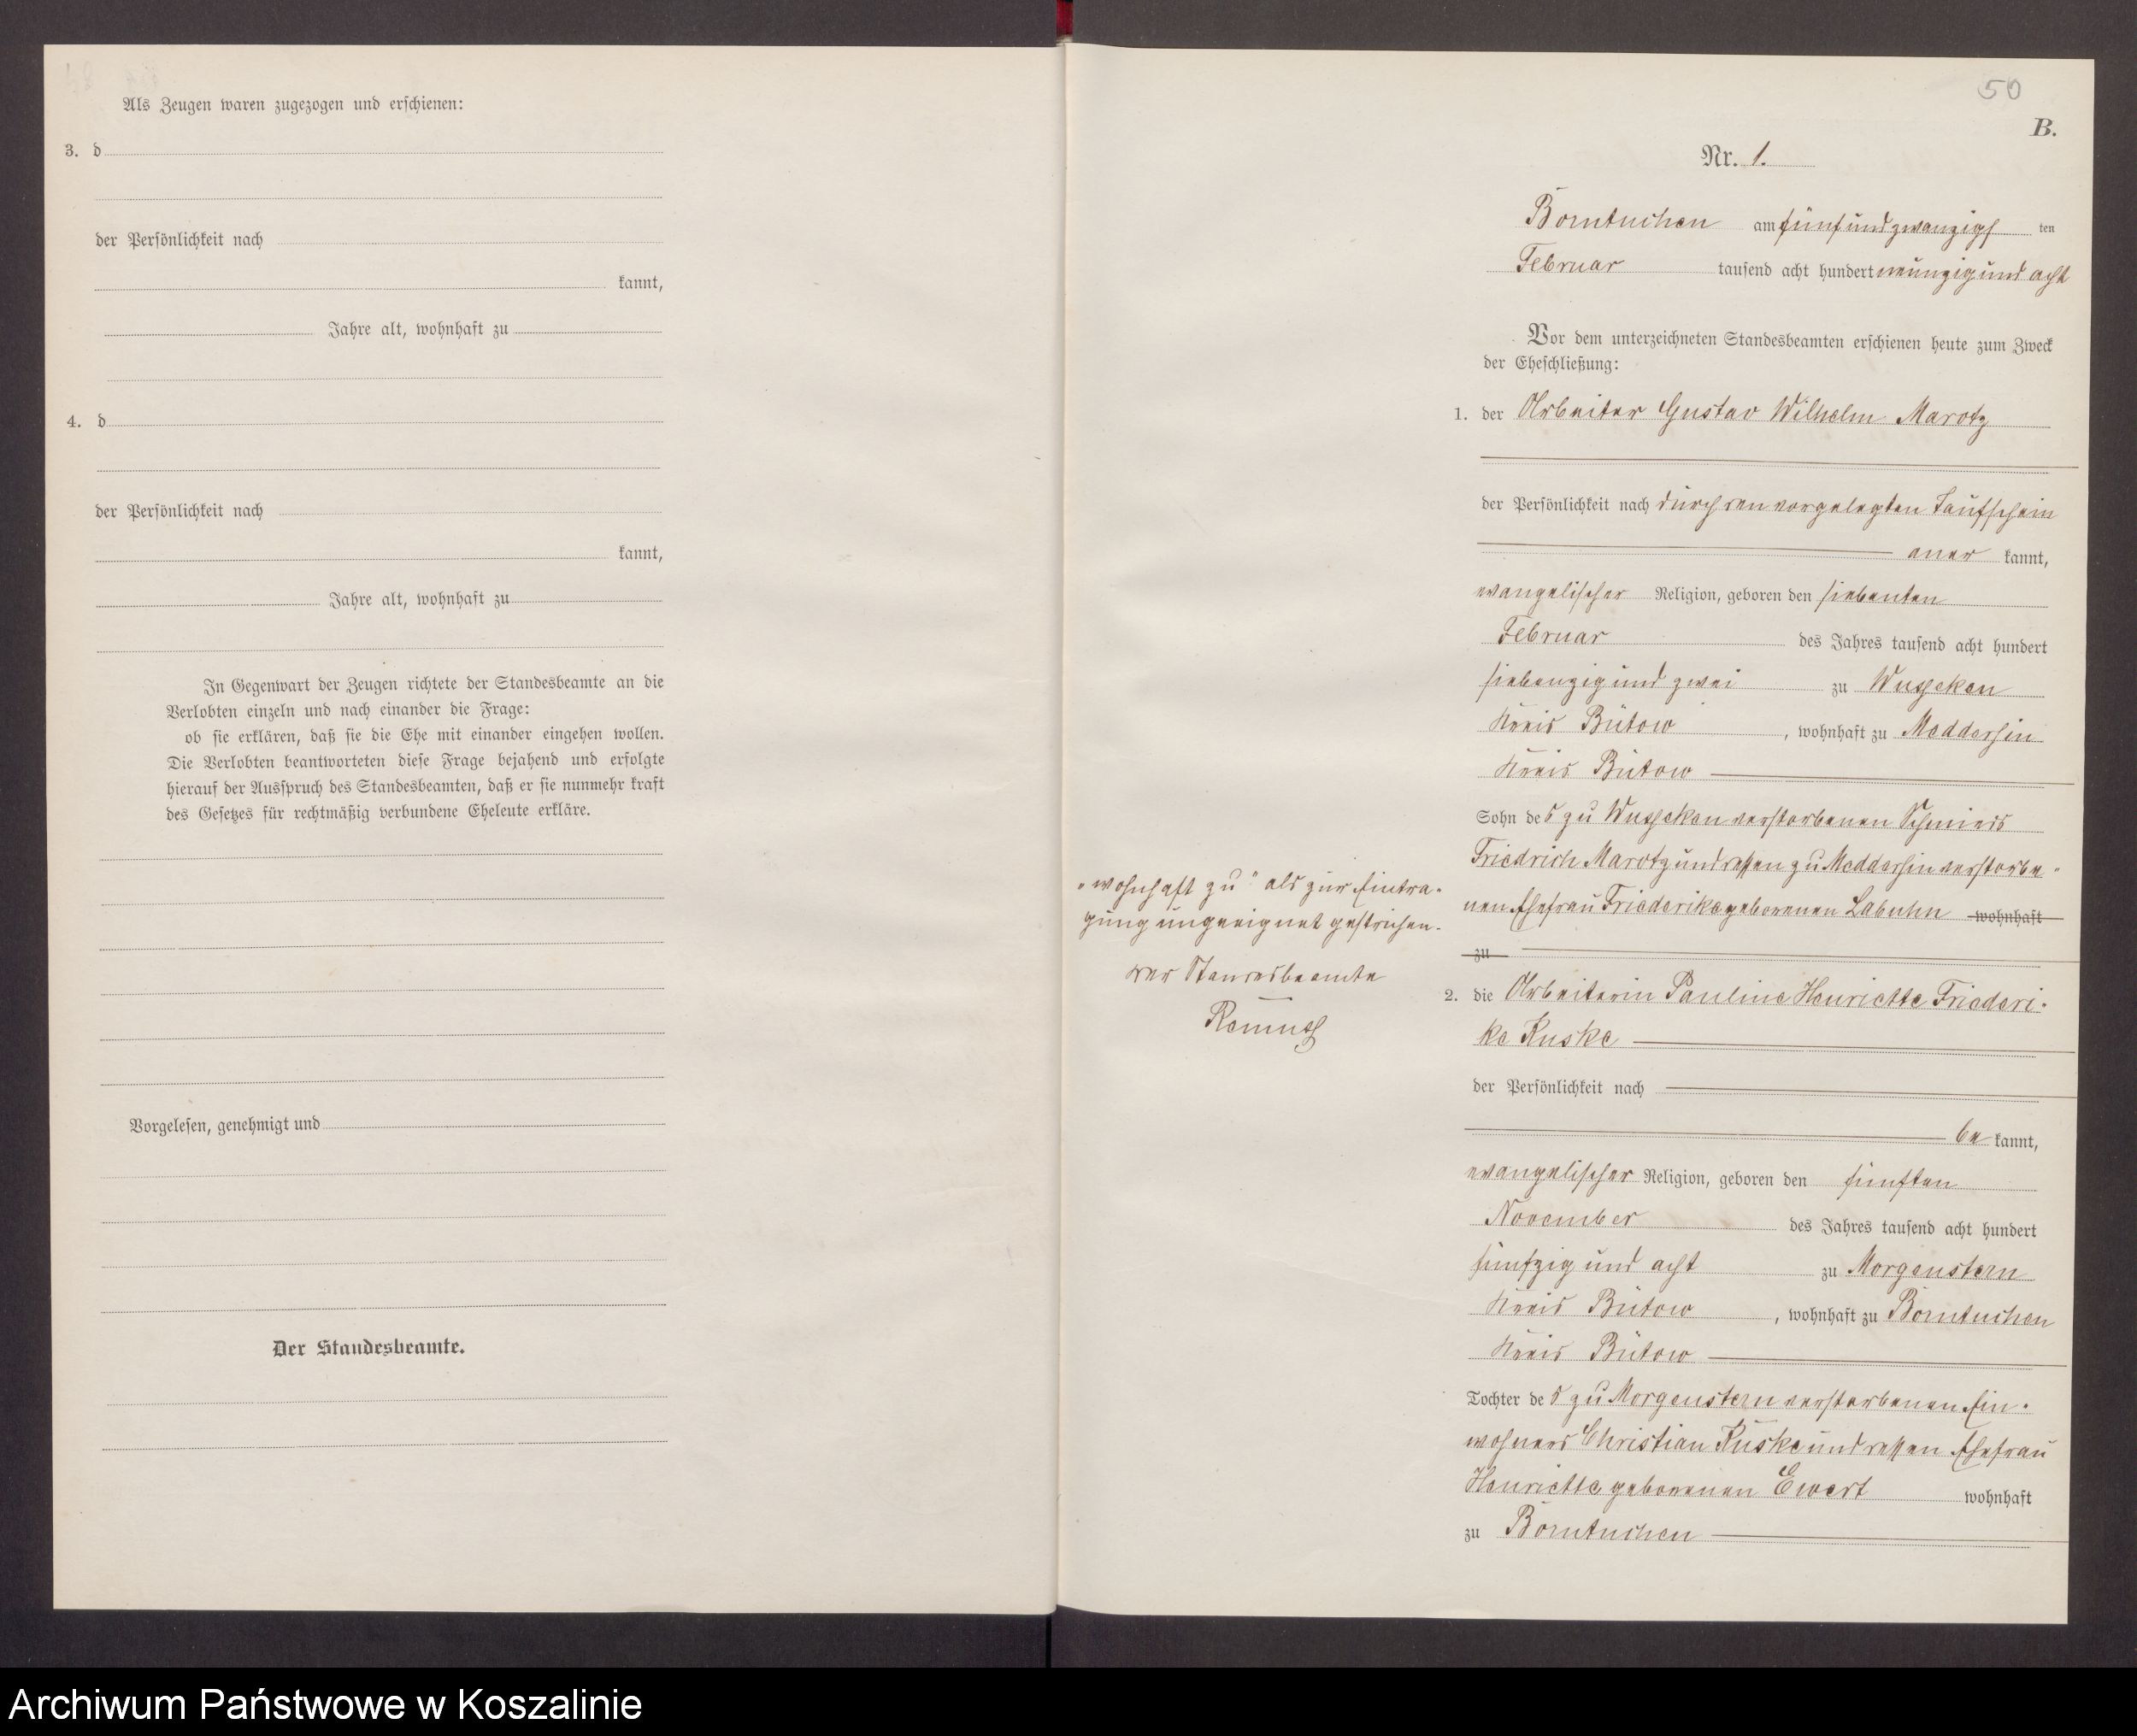 Als Zeugen waren zugezogen und erschienen:
3. d
der Persönlichkeit nach
kannt,
Jahre alt, wohnhaft zu
4. d
der Persönlichkeit nach
kannt,
Jahre alt, wohnhaft zu
In Gegenwart der Zeugen richtete der Standesbeamte an die
Verlobten einzeln und nach einander die Frage:
ob sie erklären, daß sie die Ehe mit einander eingehen wollen.
Die Verlobten beantworteten diese Frage bejahend und erfolgte
hierauf der Ausspruch des Standesbeamten, daß er sie nunmehr kraft
des Gesetzes für rechtmäßig verbundene Eheleute erkläre.
Vorgelesen, genehmigt und
Der Standesbeamte.
50
B.
Nr. 1.
Borntuchen am fünfundzwanzigsten
Februar tausend acht hundert neunzig und acht
Vor dem unterzeichneten Standesbeamten erschienen heute zum Zweck
der Eheschließung:
1. der Arbeiter Gustav Wilhelm Marotz
der Persönlichkeit nach durch den vorgelegten Taufschein
aner kannt,
evangelischer Religion, geboren den siebenten
Februar des Jahres tausend acht hundert
siebenzig und zwei zu Wusseken
Kreis Bütow, wohnhaft zu Meddersin
Kreis Bütow
Sohn des zu Wusseken verstorbenen Schmieds
Friedrich Marotz und dessen zu Meddersin verstorbe-
nen Ehefrau Friederike geborenen Labuhn wohnhaft
zu
"wohnhaft zu" als zur Eintra-
gung ungeeignet gestrichen.
Der Standesbeamte
2. die Arbeiterin Pauline Henriette Friederi-
ke Kuske
der Persönlichkeit nach
be kannt,
evangelischer Religion, geboren den fünften
November des Jahres tausend acht hundert
fünfzig und acht zu Morgenstern
Kreis Bütow, wohnhaft zu Borntuchen
Kreis Bütow
Tochter des zu Morgenstern verstorbenen Ein-
wohners Christian Kuske und dessen Ehefrau
Henriette geborenen Ewert wohnhaft
zu Borntuchen
Archiwum Państwowe w Koszalinie